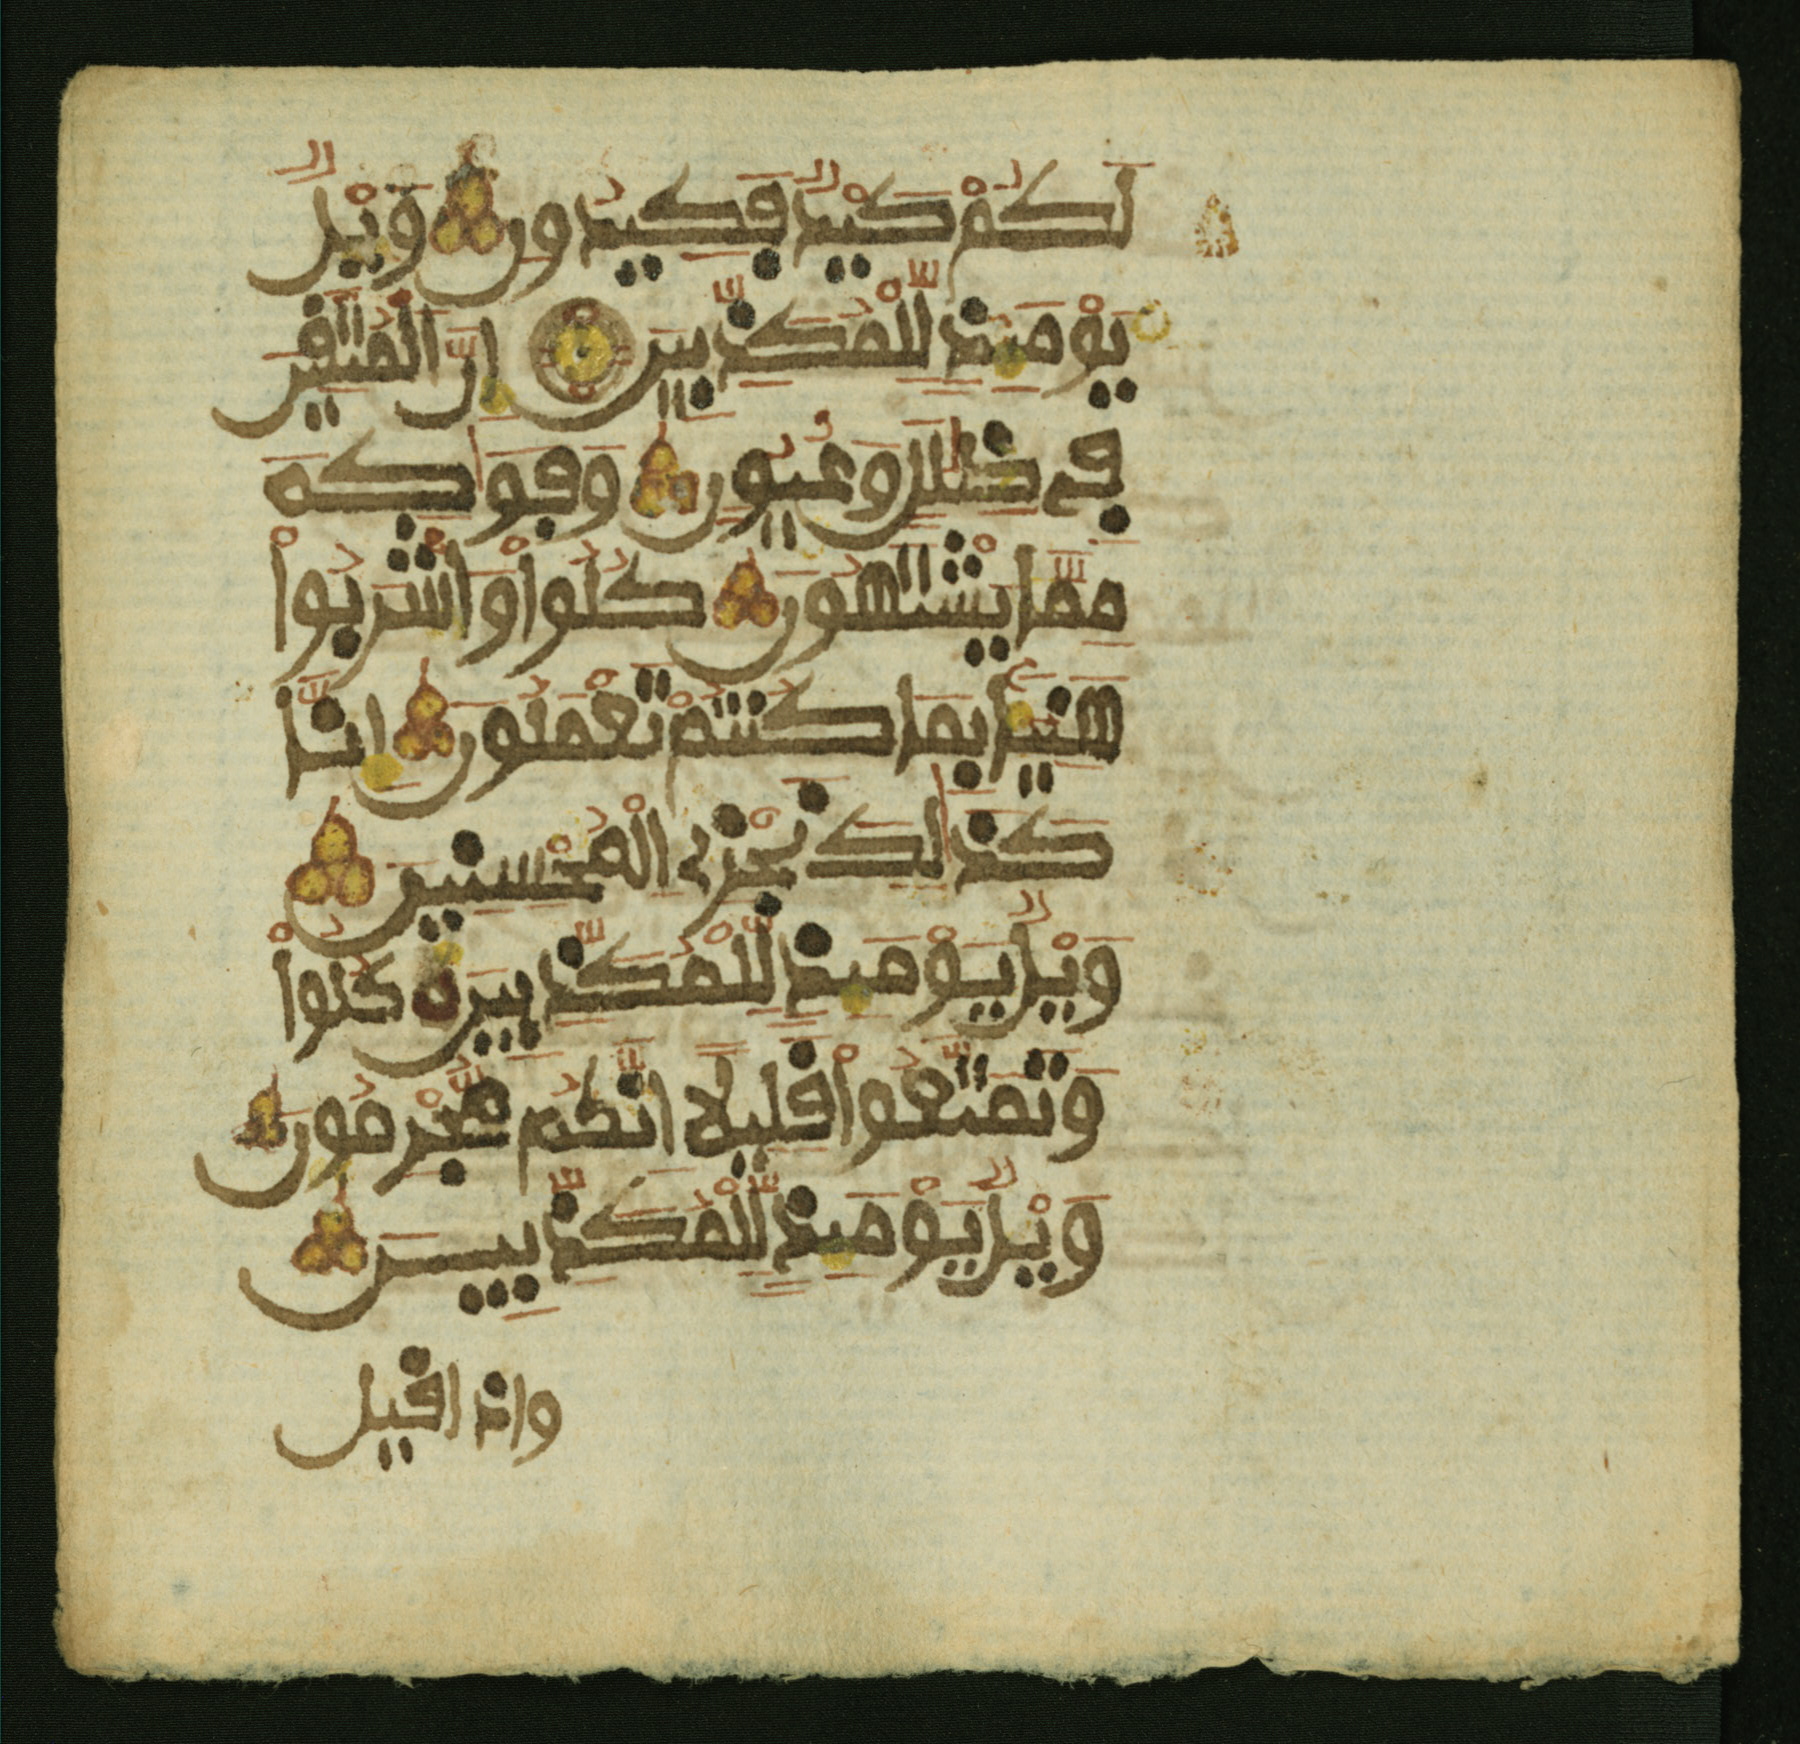 لَكُمْ كَيْدٌ فَكِيدُونِ وَيْلٌ
يَوْمَئِذٍ لِّلْمُكَذِّبِينَ إِنَّ الْمُتَّقِينَ
فِي ظِلَٰلٍ وَعُيُونٍ وَفَوَٰكِهَ
مِمَّا يَشْتَهُونَ كُلُوا۟ وَاشْرَبُوا۟
هَنِيـًٔا بِمَا كُنتُمْ تَعْمَلُونَ إِنَّا
كَذَٰلِكَ نَجْزِي الْمُحْسِنِينَ
وَيْلٌ يَوْمَئِذٍ لِّلْمُكَذِّبِينَ كُلُوا۟
وَتَمَتَّعُوا۟ قَلِيلًا إِنَّكُم مُّجْرِمُونَ
وَيْلٌ يَوْمَئِذٍ لِّلْمُكَذِّبِينَ
واذا قيل